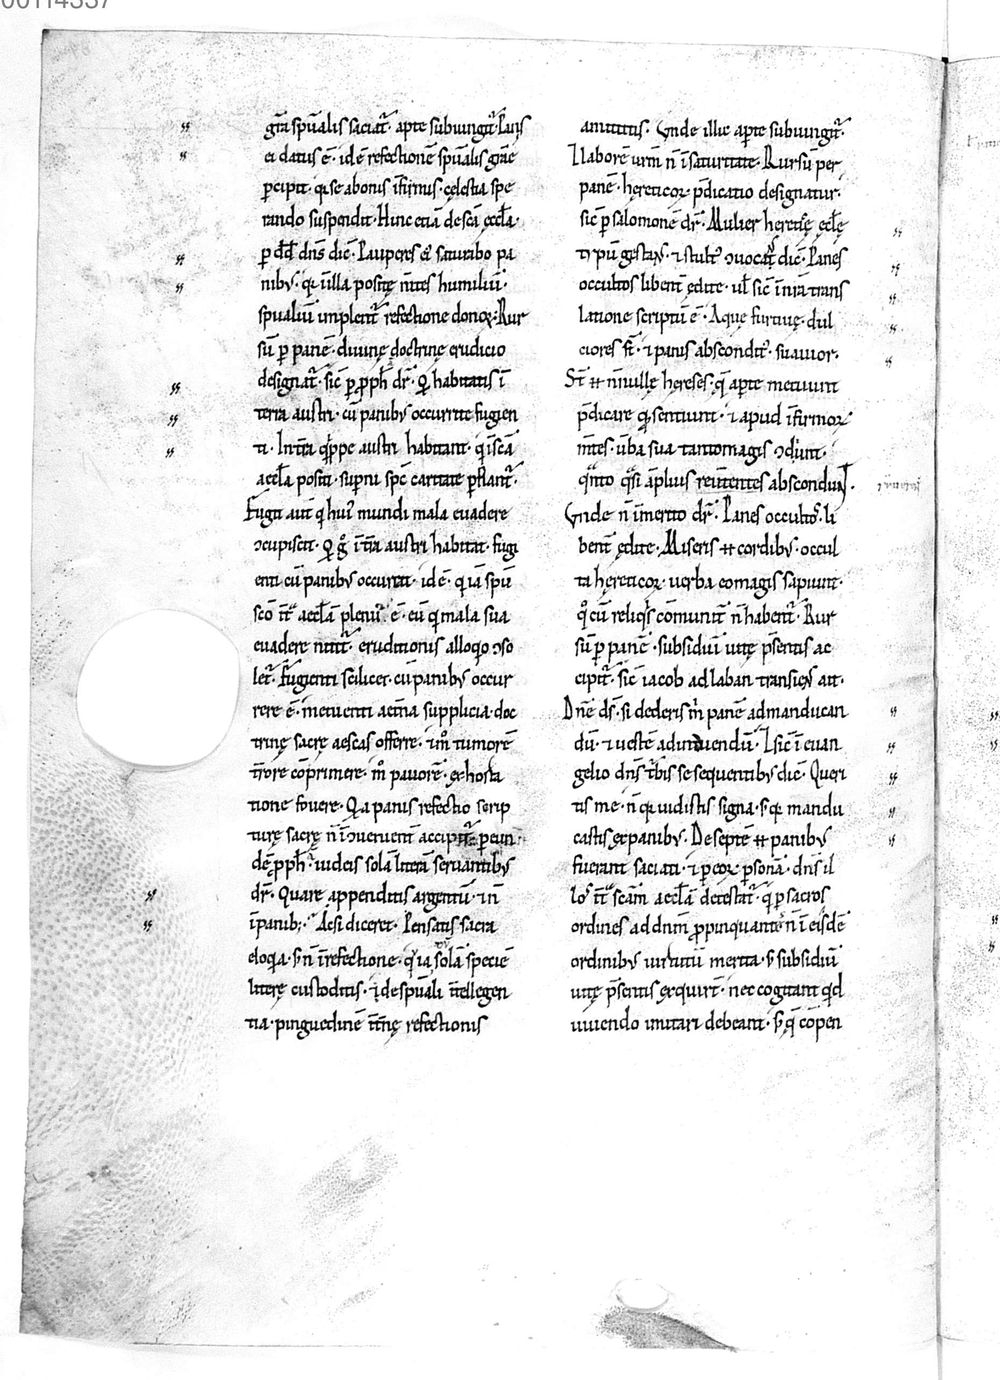 00114337
gr̄a sp̄ualis saciat᷑. apte subiungit᷑. Panis
ei datus ē. id ē refectionē sp̄ualis gr̄ae
p̲cipit. qi se abonis īfirmis. cęlestia spe
rando suspendit. Hinc etiā de scā ęccl̄a.
p̲ dd̄ dn̄s dic̄. Pauperes ei᷑ saturabo pa
nibꝰ. qꝛ in illa positę m̄tes humiliū.
sp̄ualiū implent᷑ refectione donoꝝ. Rur
sū p̲ panē. diuinę doctrinę erudicio
designat᷑. sic̄ p̲ p̲ph̄ dr̄. Qi habitatis ī
terra austri. cū panibꝰ occurrite fugien
ti. In t̄ra q̄ppe austri habitant. qi ī scā
aeccl̄a positi. sup̲ni sp̄c caritate p̲flant᷑.
Fugit aut̄ qi huiꝰ mundi mala euadere
ↄcupiscit. Qi g° ī t̄ra austri habitat. fugi
enti cū panibꝰ occurrat. id ē. qi iā sp̄u
scō īt᷑ aeccl̄ā plenꝰ ē. eū qi mala sua
euadere nitit᷑. eruditionis alloqio ↄso
let᷑. Fugienti scilicet. cū panibꝰ occur
rere ē. metuenti aet̄na supplicia. doc
trinę sacrę aescas offerre. ⁊ m° tumorē
t̄rore cōprimere. m° pauorē. exhorta
tione fouere. Qia panis refectio scrip
turę sacrę n̄ īↄuenient̄ accipit᷑. p̲ eun
dē p̲ph̄. iudeis solā litterā seruantibꝰ
dr̄. Quare appenditis argentū. ⁊ n̄
ī panib;. Acsi diceret. Pensatis sacra
eloqia. s; n̄ ī refectione. qi iā solā speciē
literę custoditis. ⁊ de sp̄uali īntellegen
tia. pinguedinē īt̄nę refectionis
amittitis. Unde illic apte subiungit᷑.
⁊ laborē ur̄m n̄ ī saturitate. Rursū per
panē. hereticoꝝ p̄dicatio designatur.
sic̄ p̲ salomonē dr̄. Mulier hereticę eccl̄ę
typū gestans. ⁊ stultos ↄuocans dic̄. Panes
occultos libent̄ ędite. ul̄ sic̄ ī nr̄a trans
latione scriptū ē. Aque furtiuę. dul
ciores st̄. ⁊ panis absconditꝰ. suauior.
St̄ ⁊ n̄nullę hereses. q̄ apte metuunt
p̄dicare qi sentiunt. ⁊ apud īfirmoꝝ
m̄tes. u̅ba sua tanto magis ↄdiunt.
qnto qsi āplius reuerentes abscondunt.
Unde n̄ īmerito dr̄. Panes occultos. li
bent̄ ędite. Miseris ⁊ cordibꝰ. occul
ta hereticoꝝ uerba eo magis sapiunt.
q° cū reliqis cōmunit̄ n̄ habent᷑. Rur
sū p̲ panē. subsidiū uitę p̄sentis ac
cipit᷑. sic̄ iacob ad laban transiens ait.
Dn̄e ds̄. si dederis m̄ panē ad manducan
dū. ⁊ uestē ad induendū. ⁊ sic̄ ī euan
gelio dn̄s t̄bis se sequentibꝰ dic̄. Queri
tis me. n̄ qꝛ uidistis signa. s; qꝛ mandu
castis ex panibꝰ. De septē ⁊ panibꝰ
fuerant saciati. ⁊ p̲ eoꝝ p̲sonā. dn̄s il
los īt᷑ scām aeccl̄ā detestat᷑. qi p̲ sacros
ordines ad dnm̄ p̲pinquantes. n̄ ī eisdē
ordinibꝰ uirtutū merita. s; subsidiū
uitę p̄sentis exquirt̄. nec cogitant qid
uiuendo imitari debeant. s; q̄ cōpen